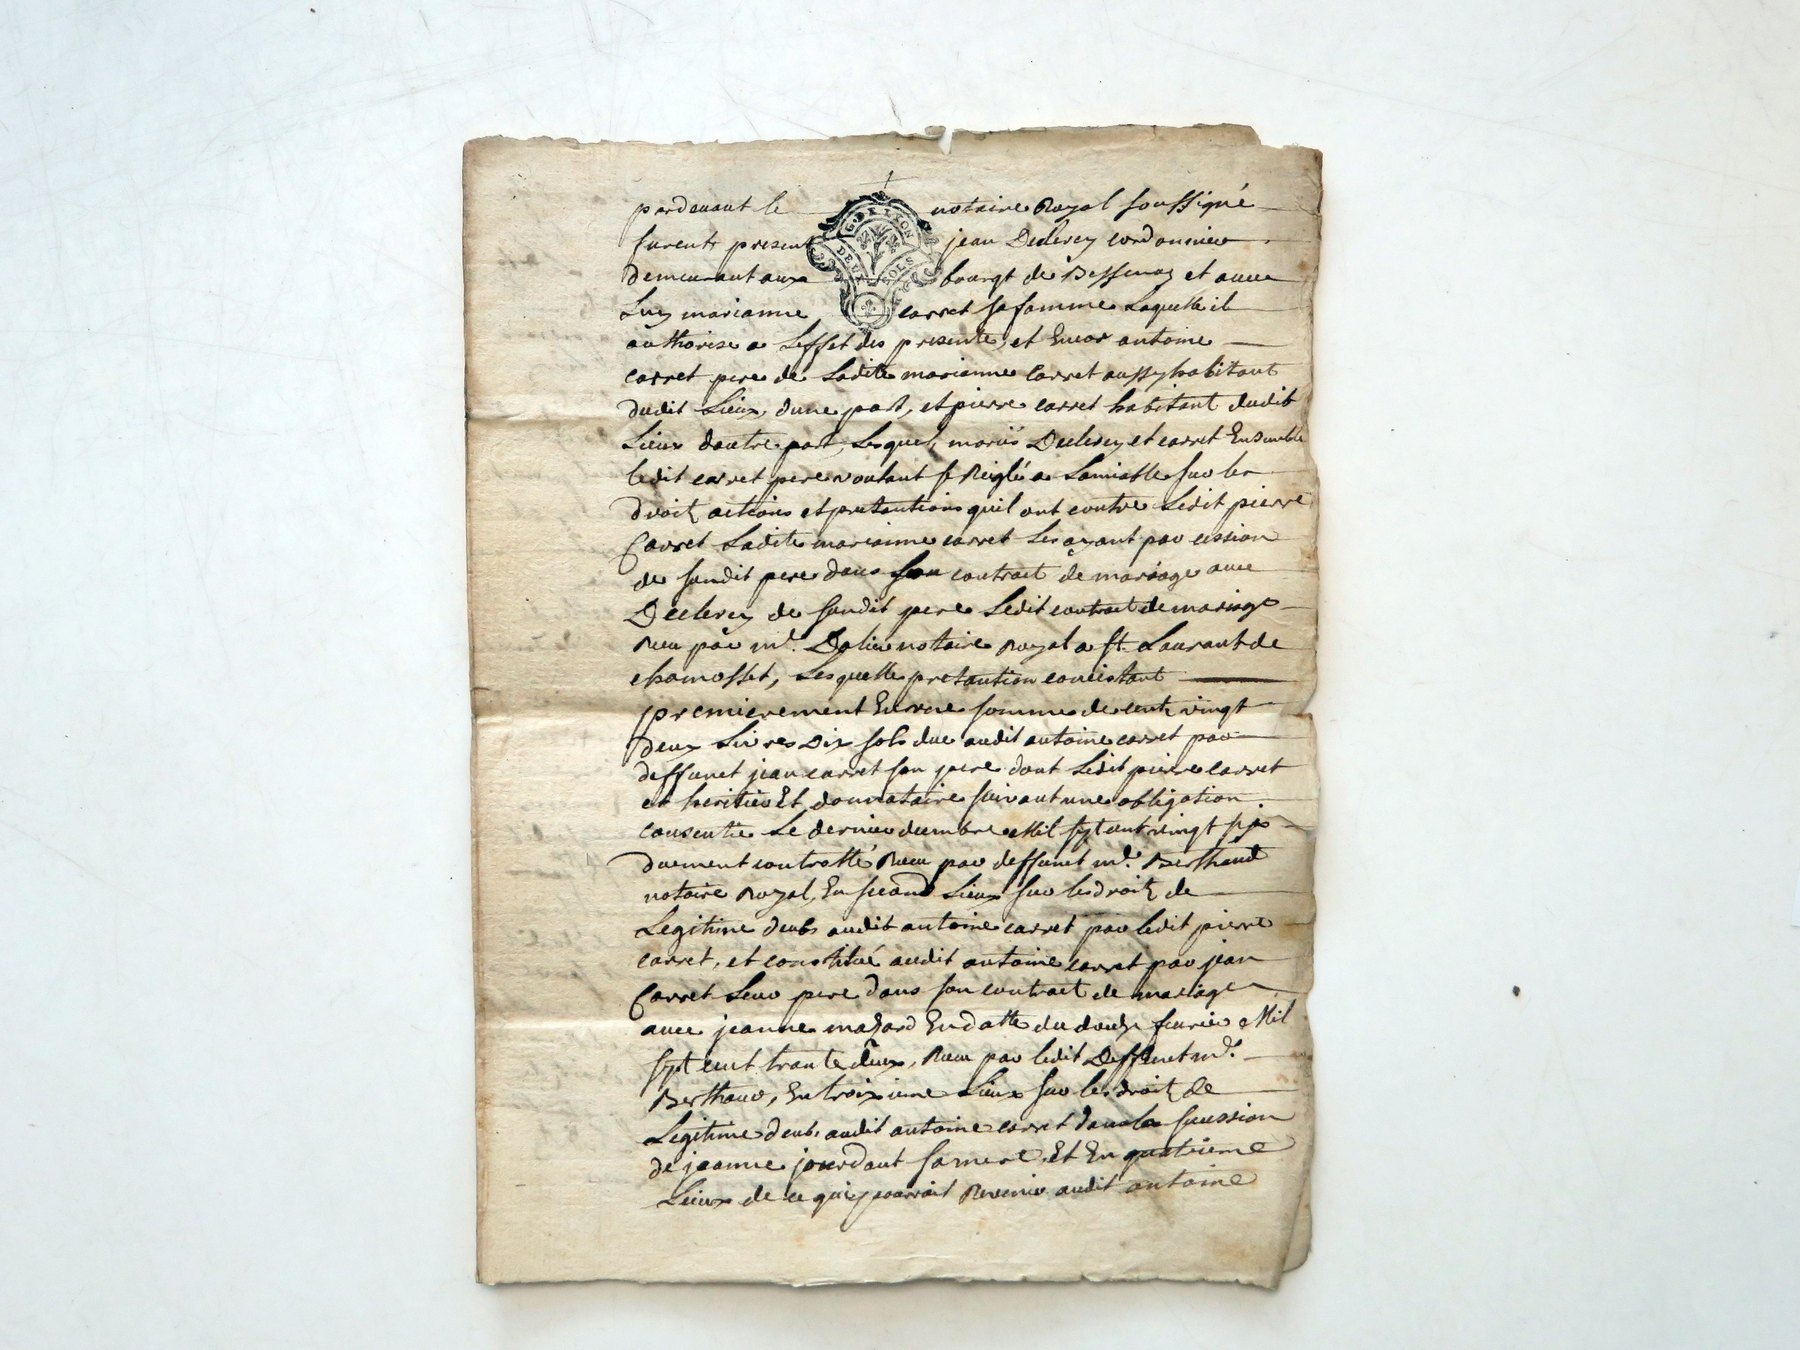 pardevant le notaire Royal soussigné
furent present jean Declerey cordonnier
demeurant aux bourgt de Bessenay et avec
Luy marianne carret sa famme Laquelle il
authorise a Leffet des presente, et Encor antoine
carret pere de Ladite marianne Carret aussy habitant
dudit Lieux, dune part, et pierre carret habitant dudit
Lieux dautre part, Lesquels mariés Declerey et carret Ensemble
ledit carret pere voulant se Reiglé a Lamiable sur les
droit actions et pretantions quil ont contre Ledit pierre
Carret Ladite marianne carret Les ayant par cession
de sondit pere dans son contract de mariage avec
Declerey de sondit pere Ledit contract de mariage
Recu par mr. notaire Royal a St. Laurant de
chamosset, Lesquelle pretantion concistant
premierement En une somme de cent vingt
deux Livres Dix sols due audit antoine carret par
deffunct jean carret son pere dont Ledit pierre carret
et heritier Et donnataire suivant une obligation
consentie Le dernier decembre Mil sept cent vingt six
duement controllé Recu par deffunct mr. Berthaud
notaire Royal, En second Lieux sur les droit de
Legitime deubs audit antoine carret par ledit pierre
carret, et constitué audit antoine carret par jean
Carret Leur pere dans son contract de mariage
avec jeanne mazard En datte du douze fevrier Mil
sept cent trante deux, Recu par ledit Deffunct mr.
Berthaud, En troixieme Lieux sur les droit de
Legitime deubs audit antoine carret dans la sucession
de jeanne jourdant sa mere, Et En quatrieme
Lieux de ce qui pourrait Revenir audit antoine
G. DE LYON
DEUX SOLS